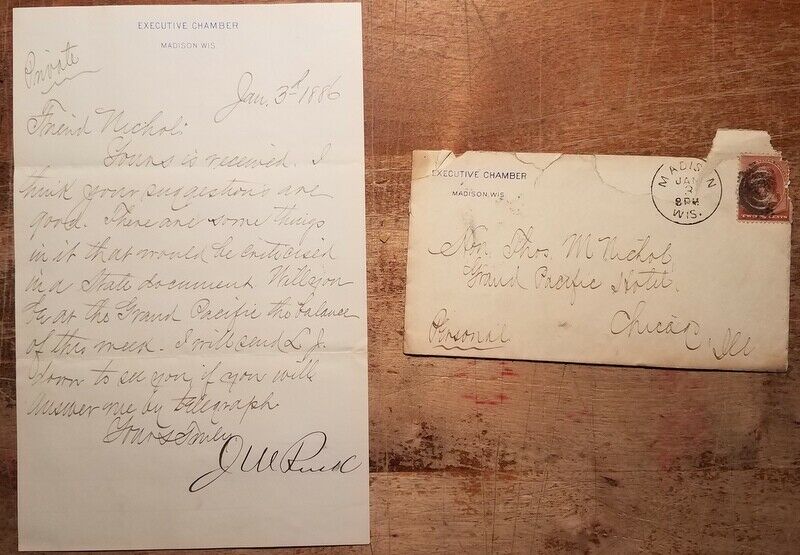 EXECUTIVE CHAMBER
MADISON, WIS.
Private
Jan. 3d 1886
Friend Nichol:
Yours is received. I
think your suggestions are
good. There are some things
in it that would be criticised
in a State document. Will you
be at the Grand Pacific the balance
of this week. I will send L. J.
down to see you, if you will
answer me by telegraph.
Yours Truly
J M Rusk
EXECUTIVE CHAMBER
MADISON, WIS.
MADISON
JAN
3
8PM
WIS.
TWO CENTS
Hon. Thos M Nichol
Grand Pacific Hotel,
Chicago, Ill
Personal